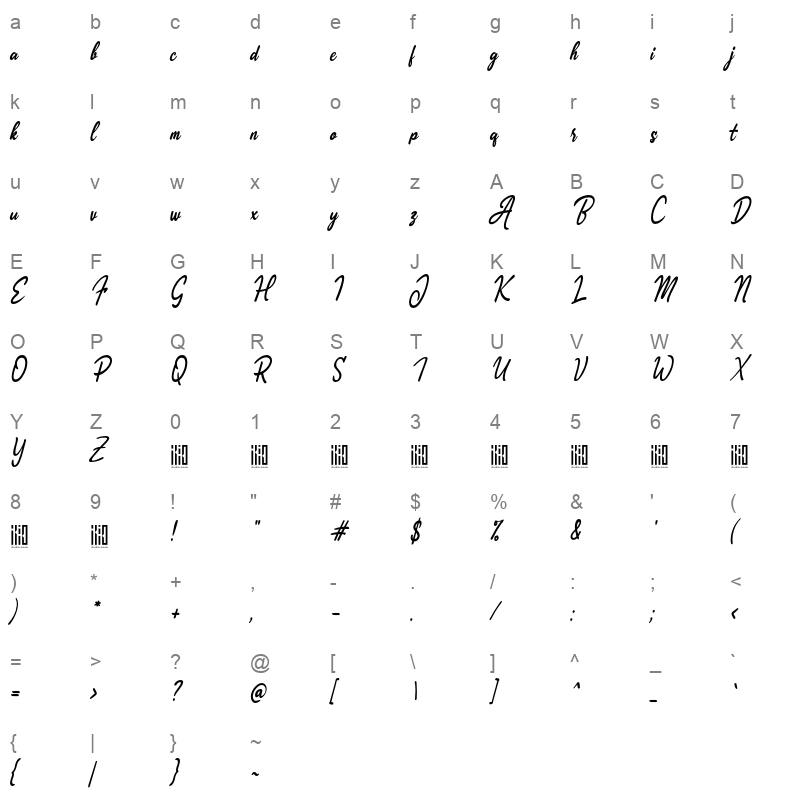 a b c d e f g h i j
a b c d e f g h i j
k l m n o p q r s t
k l m n o p q r s t
u v w x y z A B C D
u v w x y z A B C D
E F G H I J K L M N
E F G H I J K L M N
O P Q R S T U V W X
O P Q R S T U V W X
Y Z 0 1 2 3 4 5 6 7
Y Z
8 9 ! " # $ % & ' (
! " # $ % & ' (
) * + , - . / : ; <
) * + , - . / : ; <
= > ? @ [ \ ] ^ _ `
= > ? @ [ \ ] ^ _ `
{ | } ~
{ | } ~